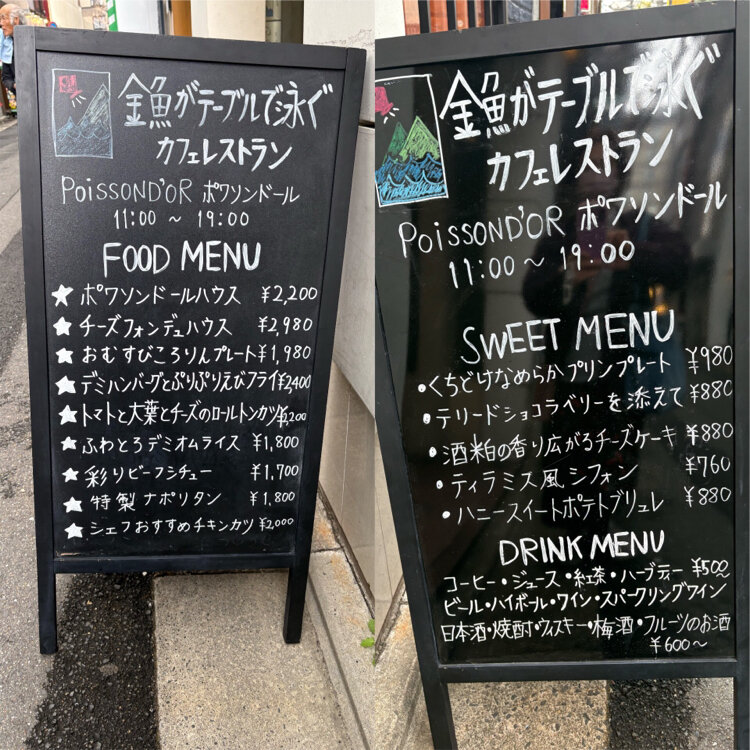 金魚がテーブルで泳ぐ
カフェレストラン
POISSOND'OR ポワソンドール
11:00 〜 19:00
FOOD MENU
★ ポワソンドールハウス ¥2,200
★ チーズフォンデュハウス ¥2,980
★ おむすびころりんプレート ¥1,980
★ デミハンバーグとぷりぷりえびフライ ¥2400
★ トマトと大葉とチーズのロールトンカツ
★ ふわとろデミオムライス ¥1,800
★ 彩りビーフシチュー ¥1,700
★ 特製ナポリタン ¥1,800
★ シェフおすすめチキンカツ ¥2,000
金魚がテーブルで泳ぐ
カフェレストラン
POISSOND'OR ポワソンドール
11:00 〜 19:00
SWEET MENU
・くちどけなめらかプリンプレート ¥980
・テリードショコラベリーを添えて ¥880
・酒粕の香り広がるチーズケーキ ¥880
・ティラミス風シフォン ¥760
・ハニースイートポテトブリュレ ¥880
DRINK MENU
コーヒー・ジュース・紅茶・ハーブティー ¥500〜
ビール・ハイボール・ワイン・スパークリングワイン
日本酒・焼酎・ウィスキー・梅酒・フルーツのお酒
¥600〜